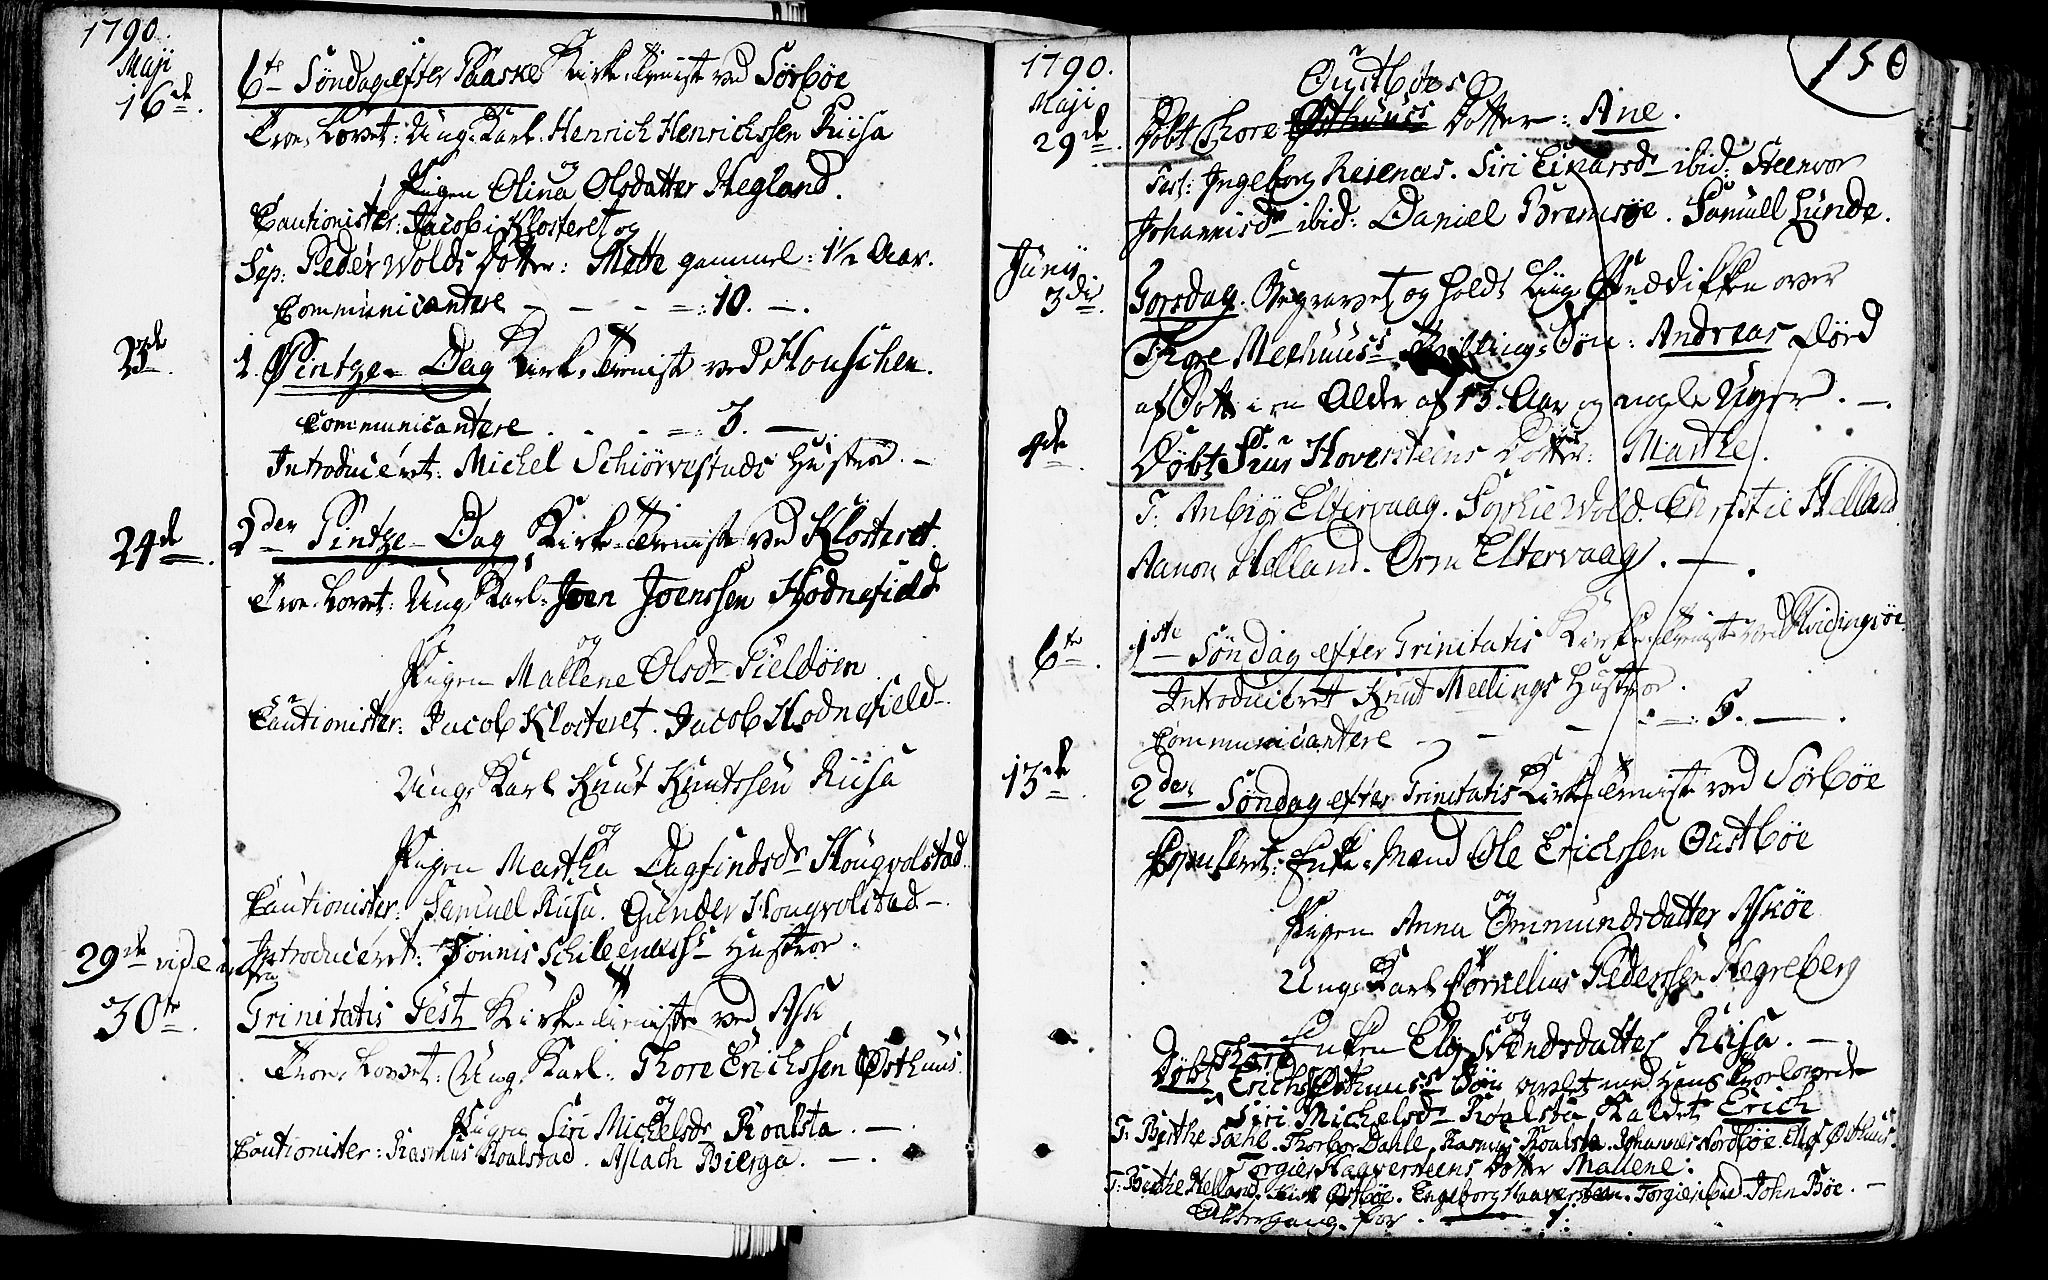 1790.
Maji
16de. 6te Søndag efter Paaske Kirke-Tieniste ved Sørbøe
Troe-Lovet: Ung-Karl. Henrich Henrichssen Riisa
og
Pigen Olina Olsdatter Hegland.
Cautionister: Jacob i Klosteret og
Sep: Peder Wolds Dotter: Mette gammel: 1½ Aar.
Communicantere - - - =: 10. -.
23de 1. Pintze-Dag Kirke-Tieniste ved Houschen.
Communicantere . - - =: 3. -
Introduceret: Michel Schiørvestads Hustroe. -
24de. 2den Pintze-Dag Kirke-Tieniste ved Klosteret.
Troe-Lovet: Ung-Karl: Joen Joenssen Hodnefield
og
Pigen Mallene Olsdr Fieldøen
Cautionister: Jacob Klosteret. Jacob Hodnefield-.
Ung-Karl Knut Knutssen Riisa
og
Pigen Martha Dagfindsdr Hougvolstad.
Cautionister: Samuel Riisa. Gunder Hougvolstad-.
29de vide Introduceret: Tønnis Schileenæss Hustroe.
30te. Trinitatis Fest Kirke-Tieniste ved Ask
Troe-Lovet: Ung-Karl: Thore Erichssen Østhuus
og
Pigen Siri Michelsdr Roalsta. -.
Cautionister: Rasmus Roalstad. Aslach Bierga. -.
150
1790.
Maji
Oustbøes
29de. Døbt Thore Østhuuss Dotter: Ane.
Test: Ingeborg Reienæs. Siri Einarsdr ibid: Steenvor
Johannisdr ibid: Daniel Bremsøe. Samuel Lunde.
Junij
3die. Torsdag. Begravet og holdt Liig-Prædiken over
Thore Meehuuss Tvilling-Søn: Andreas Død
af i en Alder af 13. Aar og nogle Uger. -.
4de. Døbt Siur Hoversteens Dotter: Marthe.
T: Anbiør Eltervaag. Sophie Wold. Christie Helland.
Aanon Helland. Orm Eltervaag. -.
6te. 1ste Søndag efter Trinitatis Kirke-Tieniste ved Hvidingsøe.
Introduceret Knut Mellings Hustroe.
Communicantere - - - =: 5. -.
13de. 2den Søndag efter Trinitatis Kirke-Tieniste ved Sørbøe
Copuleret: Enke-Mand Ole Erichssen Oustbøe
og
Pigen Anna Ommundsdatter Askøe
Ung-Karl Cornelius Pederssen Hegreberg
og
Enken Eli Svendsdatter Riisa. -
Thore
Døbt Erichs Østhuuss Søn avlet med Hans Troelovede
Siri Michelsdr Roalsta kaldet Erich
T: Berthe Sæhl. Thorbor Dahle. Rasmus Roalsta. Johannes Nordbøe. Elling Østhuus.
Torgier Haaversteens Dotter Mallene:
T: Berthe Helland. Siri Østbøe. Engeborg Haaversteen. Torgier ibid. John Bøe. -
Altergang for. - 1.